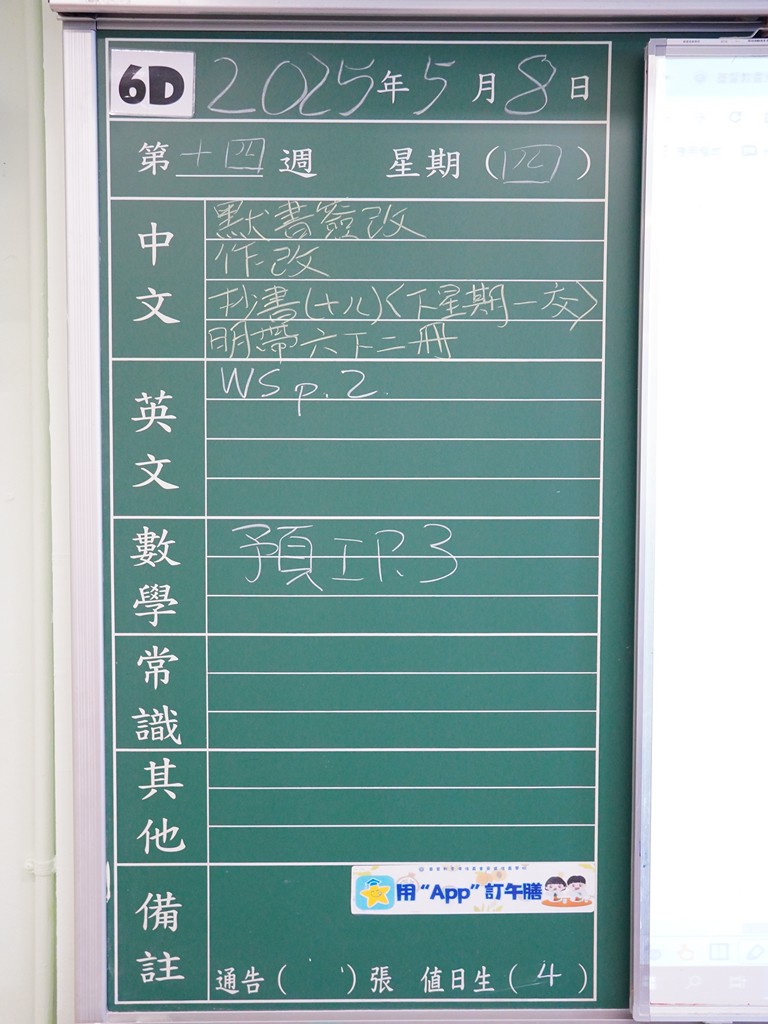 6D 2025年5月8日
第十四週 星期(四)
中文
默書簽改
作改
抄書(十八)<下星期一交>
明帶六下二冊
英文
WS p.2.
數學
預工P.3
常識
其他
備註
用“App”訂午膳
通告( )張 值日生(4)